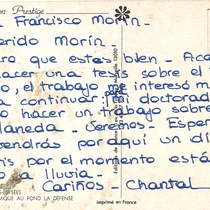 en Prestige
Francisco Morín
erido Morín
ro que estés bien. Aca
acer una tesis sobre el
o, el trabajo me interesó m
a continuar mi doctorad
o hacer un trabajo sobre
laneda. Seremos. Esper
endrás por aquí un dí
ís por el momento está
o a lluvia.
Cariños Chantal
MIQUE AU FOND LA DEFENSE
imprimé en France